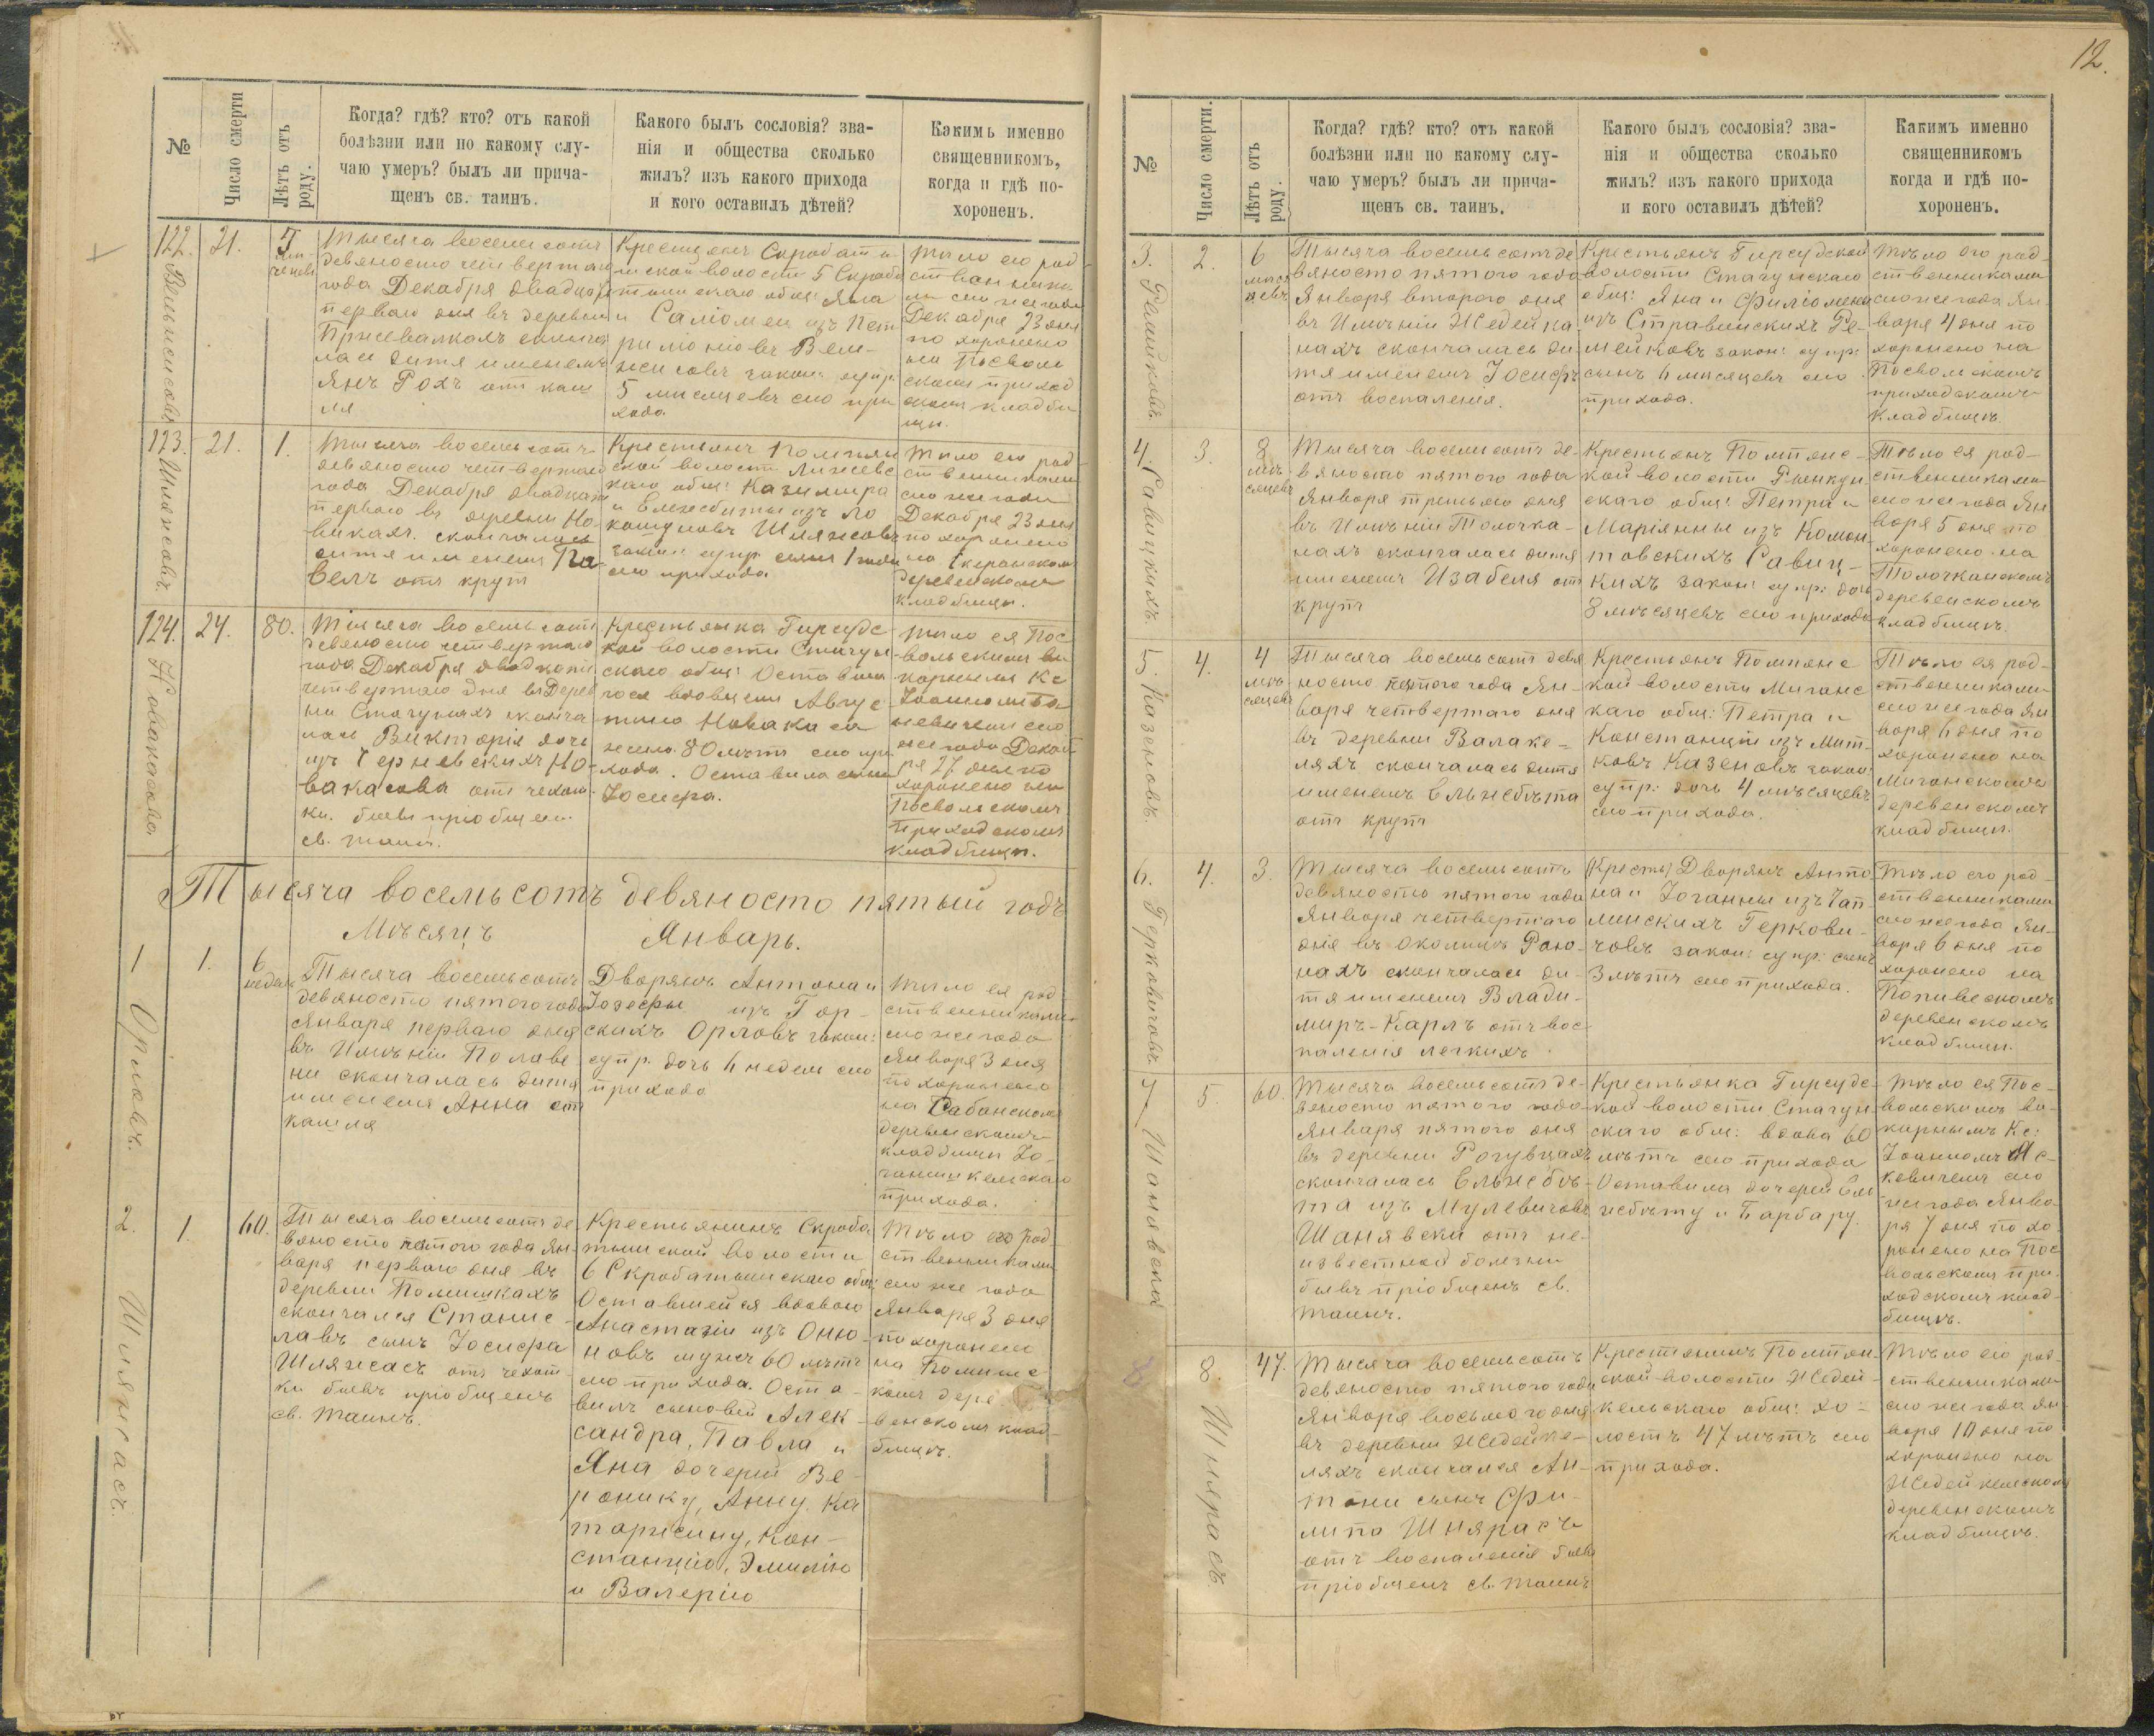 12.
№
Число смерти
Лѣтъ отъ
роду.
Когда? гдѣ? кто? отъ какой
болѣзни или по какому слу-
чаю умеръ? былъ ли прича-
щенъ св. таинъ.
Какого былъ сословія? зва-
нія и общества сколько
жилъ? изъ какого прихода
и кого оставилъ дѣтей?
Какимъ именно
священникомъ,
когда и гдѣ по-
хороненъ.
122.
21.
5
Тысяча восемьсотъ
девяносто четвертаго
года Декабря двадцать
перваго дня въ деревни
скончалась
дитя именемъ
Янъ Рохъ отъ каш
ля
Яна
и Саліомеи изъ
5 мисяцевъ сю при
хода
Тило ею род
ственника
ми сю же года
Декабря 23 дня
по хоронено
на Посволь
скомъ приход
скомъ кладби
щи.
123.
Шляжовъ.
21.
1.
Тысяча восемьсотъ
девяносто четвертаго
года Декабря двадцать
перваго въ деревни Но-
викахъ скончалась
дитя именемъ Па-
велъ отъ крут
Крестьянъ Помпян
ской волости
каго общ: Казимира
и Ельжбиты изъ
Шляжовъ
закон: супр. сынъ 1 года
сю прихода
Тило ею род-
ственниками
сю же года
Декабря 23 дня
по хоронено
на
деревенскомъ
кладбищи.
124.
Новакасова
24.
80.
Тысяча восемьсотъ
девяносто четвертаго
года Декабря двадцать
четвертаго дня въ Дерев
ни Стагуняхъ сконча
лась Викторія дочь
изъ Черневскихъ Но-
вакасова отъ чехот
ки. бывъ пріобщен.
св. таин.
Крестьянка Гирсудс
кой волости Стагун
скаго общ: Оставша
гося вдовцем Авгус
тина Новакаса
жена 80 лѣтъ сю при
хода. Оставила сына
Іосифа.
Тило ея Пос
вольскимъ ви
карнымъ Кс
сю
же года Декаб
ря 27 дня по
хоронено на
Посвольскомъ
приходскомъ
кладбищи.
Тысяча восемьсотъ девяносто пятый годъ
Мѣсяцъ Январь.
1
Орловъ.
1.
6
недель
Тысяча восемьсотъ
девяносто пятого года
Января перваго дня
въ Имѣніи Полаве
ни скончалась дитя
именемъ Анна отъ
кашля
Дворянъ Антона и
Іозефы изъ Гор-
скихъ Орловъ закон:
супр. дочь 6 недель сю
прихода
Тило ея род
ственниками
сю же года
Января 3 дня
по хоронено
на Сабанскомъ
деревенскомъ
кладбищи Іо-
ганишкельскаго
прихода.
2.
Шляжасъ.
1.
60.
Тысяча восемьсотъ де
вяносто пятого года Ян-
варя перваго дня въ
деревни Помишкахъ
скончался Станис-
лавъ сынъ Іосифа
Шляжасъ отъ чехот-
ки бывъ пріобщенъ
св. Таинъ.
Крестьянинъ Скроба
тышской волости
6 Скробатышскаго общ:
Оставшейся вдовою
Анастазіи изъ Оню-
новъ мужъ 60 лѣтъ
сю прихода. Оста-
вилъ сыновей Алек-
сандра, Павла и
Яна дочерей Ве-
ронику, Анну, Ка
таржину, Кон-
станцію, Эмилію
и Валерію
Тѣло его род
ственниками
сю же года
Января 3 дня
по хоронено
на Помишс
комъ дере
венскомъ клад-
бищѣ.
№
Число смерти.
Лѣтъ отъ
роду.
Когда? гдѣ? кто? отъ какой
болѣзни или по какому слу-
чаю умеръ? былъ ли прича-
щенъ св. таинъ.
Какого былъ сословія? зва-
нія и общества сколько
жилъ? изъ какого прихода
и кого оставилъ дѣтей?
Какимъ именно
священникомъ
когда и гдѣ по-
хороненъ.
3.
Ремейковъ.
2.
6
мися
цевъ
Тысяча восемьсотъ де
вяносто пятого года
Января второго дня
въ Имѣніи Жедейка
нахъ скончалась ди
тя именемъ Іосифъ
отъ воспаления.
Крестьянъ Гирсудской
волости Стагунскаго
общ: Яна и Филіомены
изъ Стравинскихъ Ре-
мейковъ закон: супр:
сынъ 6 мисяцевъ сю
прихода.
Тѣло ого род-
ственниками
сю же года Ян-
варя 4 дня по
хоронено на
Посвольскомъ
приходскомъ
кладбищѣ.
4.
Савицкихъ.
3.
8
мѣ-
сяцевъ
Тысяча восемьсотъ де-
вяносто пятого года
Января третьего дня
въ Имѣніи Толочка-
нахъ скончалась дитя
именемъ Изабеля отъ
крупъ
Крестьянъ Помпянс-
кой волости Рынкун
скаго общ: Петра и
Маріянны изъ Комон-
товскихъ Савиц-
кихъ закон: супр: дочь
8 мѣсяцевъ сю прихода
Тѣло ея род-
ственниками
сю же года Ян
варя 5 дня по
хоронено на
Толочканскомъ
деревенскомъ
кладбищѣ.
5.
Казеновъ.
4.
4
мѣ-
сяцевъ
Тысяча восемьсотъ девя
носто пятого года Ян-
варя четвертаго дня
въ деревни Валаке-
ляхъ скончалась дитя
именемъ Ельжбѣта
отъ крупъ
Крестьянъ Помпянс
кой волости Миганс
каго общ: Петра и
Констанціи изъ Мит-
ковъ Казеновъ закон:
супр: дочь 4 мѣсяцевъ
сю прихода.
Тѣло ея род-
ственниками
сю же года Ян
варя 6 дня по
хоронено на
Миганскомъ
деревенскомъ
кладбищи.
6.
Герковичовъ
4.
3.
Тысяча восемьсотъ
девяносто пятого года
Января четвертаго
дня въ околицѣ Раю-
нахъ скончалась ди-
тя именемъ Влади-
миръ-Карлъ отъ вос
паленія легкихъ
(Кресть) Дворянъ Анто
на и Іоганны изъ Чап-
линскихъ Геркови-
човъ закон: супр: сынъ
3 лѣтъ сю прихода.
Тѣло его род-
ственниками
сю же года Ян-
варя 6 дня по
хоронено на
деревенскомъ
кладбищи.
7
Шанявска
5.
60.
Тысяча восемьсотъ де-
вяносто пятого года
Января пятого дня
въ деревни Рогувцахъ
скончалась Ельжбѣ-
та изъ Мулевичовъ
Шанявски отъ не-
известной болезни
бывъ пріобщенъ св.
Таинъ.
Крестьянка Гирсудс-
кой волости Стагун-
скаго общ: вдова 60
лѣтъ сю прихода
Оставила дочерей Ель
жбѣту и Барбару.
Тѣло ея Пос-
вольскимъ ви-
карнымъ Кс:
кевичемъ сю
же года Янва
ря 7 дня по хо
ронено на Пос
вольскомъ при
ходскомъ клад-
бищѣ.
8
Шнярасъ
8.
47.
Тысяча восемьсотъ
девяносто пятого года
Января восьмого дня
въ деревни Жедейке-
ляхъ скончался Ан-
тони сынъ Фи-
липа Шнярасъ
отъ воспаленія бывъ
пріобщенъ св. Таинъ
Крестянинъ Помпян-
ской волости Жедей-
кельскаго общ: хо-
лостъ 47 лѣтъ сю
прихода.
Тѣло его род-
ственниками
сю же года Ян-
варя 10 дня по
хоронено на
Жедейкельскомъ
деревенскомъ
кладбищѣ.